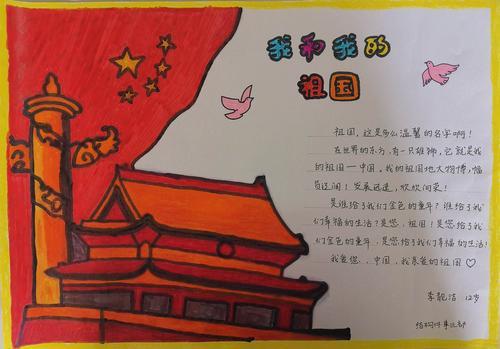 我和我的
祖国
祖国，这是多么温馨的名字啊！
在世界的东方，有一只雄狮，它就是我
的祖国—中国。我的祖国地大物博，幅
员辽阔！发展迅速，欣欣向荣！
是谁给了我们金色的童年？谁给了我
们幸福的生活？是您，祖国！是您给了我
们金色的童年，是您给了我们幸福的生活！
我爱您，中国，我亲爱的祖国♡
李靓洁 12岁
结构件事业部